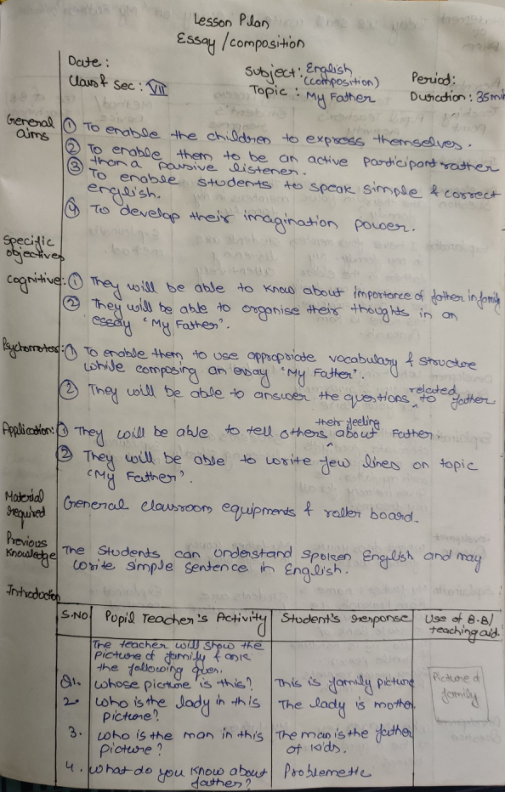 Lesson Plan
Essay/composition
Date:
Class & Sec: VII
Subject: English
(composition)
Topic: My Father
Period:
Duration: 35 min
General aims
① To enable the children to express themselves.
② To enable them to be an active participant rather
③ than a passive listener.
To enable students to speak simple & correct
english.
④ To develop their imagination power.
Specific objectives
Cognitive: ① They will be able to know about importance of father in family
② They will be able to organise their thoughts in an
essay 'My Father'.
Psychomotor: ① To enable them to use appropriate vocabulary & structure
while composing an essay 'My Father'.
② They will be able to answer the questions related to father
Application: ① They will be able to tell others their feeling about Father
② They will be able to write few lines on topic
"My Father".
Material required
General classroom equipments & roller board.
Previous Knowledge
The students can understand spoken English and may
write simple sentence in English.
Introduction
S.NO Pupil Teacher's Activity Student's response Use of B.B/
teaching aid
The teacher will show the
picture of family & ask
the following ques.
Q1. whose picture is this? This is family picture
2. who is the lady in this The lady is mother
picture?
3. who is the man in this The man is the father
picture? of kids.
4. what do you know about Problematic
father?
Picture of
family